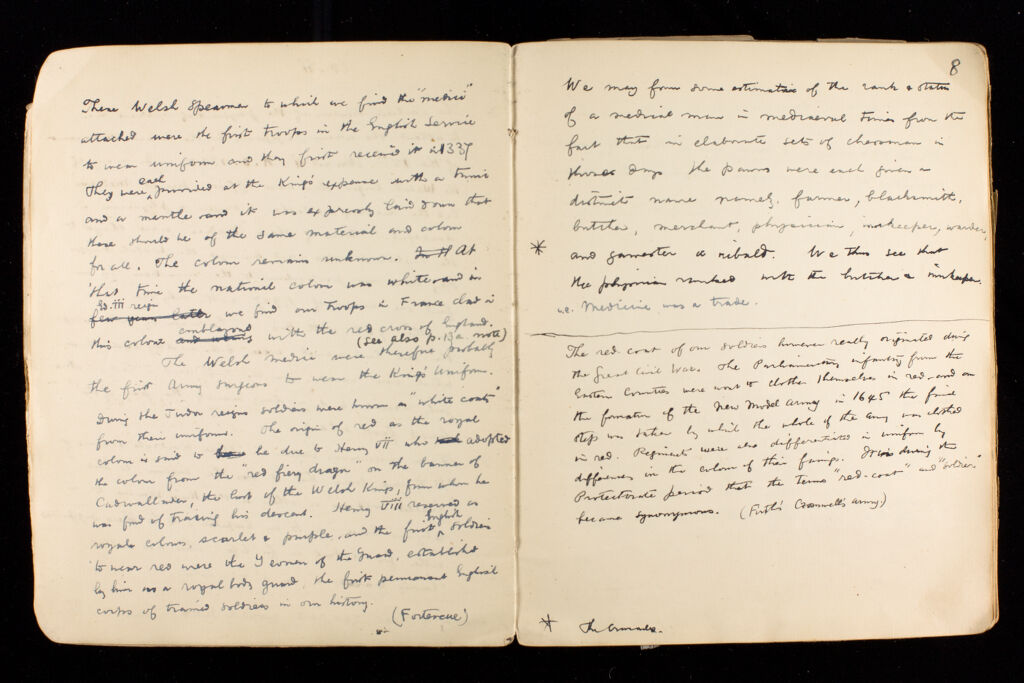 These Welsh Spearmen to which we find the "medici"
attached were the first troops in the English Service
to wear uniform and they first received it in 1337
They were each provided at the King's expense with a tunic
and a mantle and it was expressly laid down that
these should be of the same material and colour
for all. The colour remains unknown. At
that time the national colour was white and in
Ed. III reign we find our troops in France clad in
this colour emblazoned with the red cross of England.
(see also p. 13a note)
The Welsh "medici" were therefore probably
the first Army Surgeons to wear the King's Uniform.
During the Tudor reigns soldiers were known as "white coats"
from their uniforms. The origin of red as the royal
colour is said to be due to Henry VII who adopted
the colour from the "red fiery dragon" on the banner of
Cadwallader, the last of the Welsh Kings, from whom he
was fond of tracing his descent. Henry VIII reserved as
royal colours, scarlet & purple, and the first English soldiers
to wear red were the Yeomen of the Guard, established
by him as a royal body guard, the first permanent English
corps of trained soldiers in our history.
(Fortescue)
8
We may form some estimate of the rank & status
of a medical man in mediaeval times from the
fact that in elaborate sets of chessmen in
those days the pawns were each given a
distinct name namely. farmer, blacksmith,
butcher, merchant, physician, innkeeper, warder,
* and gamester or ribald. We thus see that
the physician ranked with the butcher & innkeeper.
i.e. Medicine was a trade.
The red coat of our soldiers however really originated during
the Great Civil War. The Parliamentary infantry from the
Eastern Counties were wont to clothe themselves in red and on
the formation of the New Model Army in 1645 the final
step was taken by which the whole of the army was clothed
in red. Regiments were also differentiated in uniform by
differences in the colour of their facings. It was during the
Protectorate period that the terms "red-coat" and "soldier"
became synonymous. (Firth's Cromwell's Army)
*